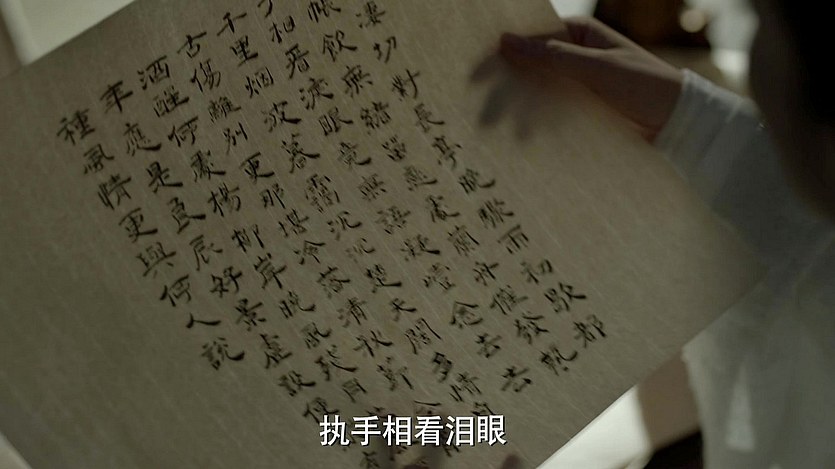 凄切對長亭晚驟雨初歇都
帳飲無緒留戀處蘭舟催發執
相看淚眼竟無語凝噎念去去
千里烟波暮靄沉沉楚天闊多情自
古傷離別更那堪冷落清秋節
酒醒何處楊柳岸曉風殘月
年應是良辰好景虛設便
種風情更與何人說
执手相看泪眼